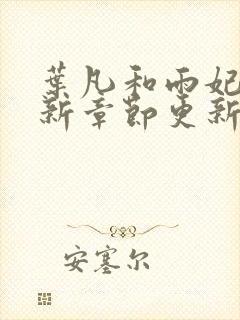 葉凡和雨妃
新章節更新
安塞尔